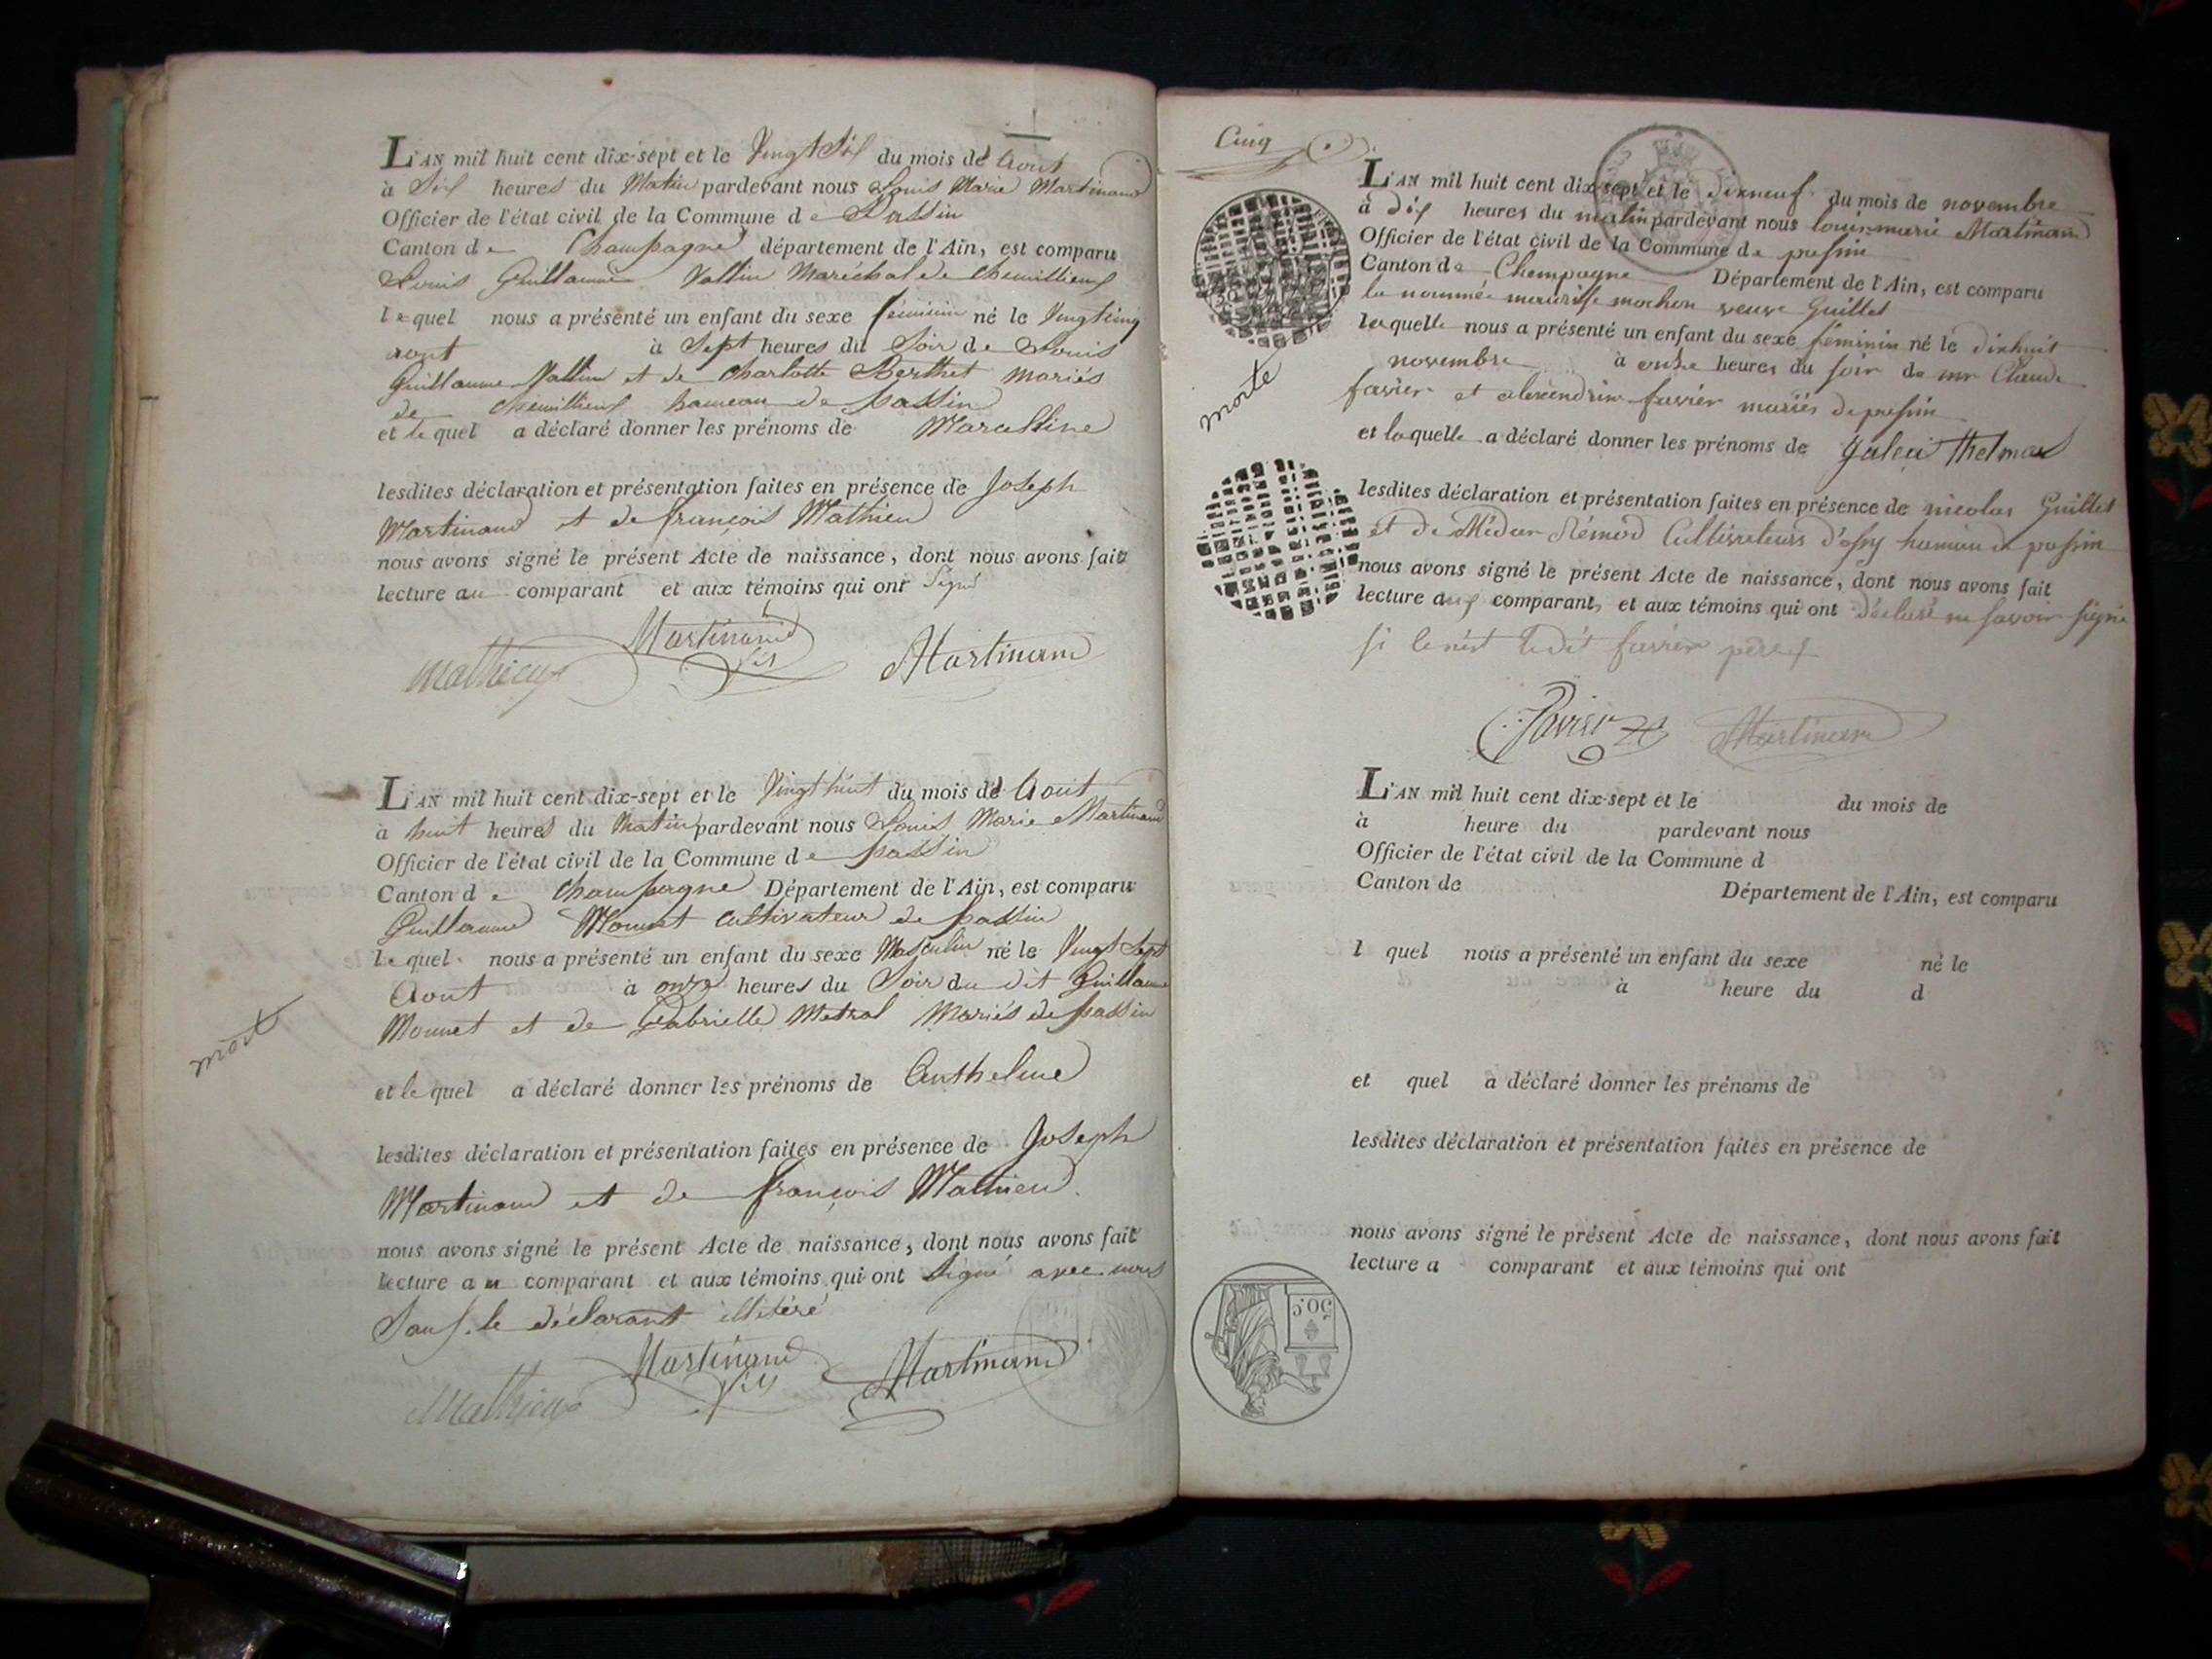 L'AN mil huit cent dix-sept et le Vingt Six du mois de Aout
à Six heures du Matin pardevant nous Louis Marie Martinand
Officier de l'état civil de la Commune de Passin
Canton de Champagne département de l'Ain, est comparu
Louis Guillaume Vallin Maréchal de chemillieux
lequel nous a présenté un enfant du sexe féminin né le Vingt cinq
aout à Sept heures du Soir de Louis
Guillaume Vallin et de Charlotte Berthet mariés
de chemillieux hameau de passin
et lequel a déclaré donner les prénoms de Marcelline
lesdites déclaration et présentation faites en présence de Joseph
Martinand et de françois Mathieu
nous avons signé le présent Acte de naissance, dont nous avons fait
lecture au comparant et aux témoins qui ont Signé
Mathieu Martinand fils Martinand
L'AN mil huit cent dix-sept et le Vingt huit du mois de Aout
à huit heures du Matin pardevant nous Louis Marie Martinand
Officier de l'état civil de la Commune de passin
Canton de Champagne Département de l'Ain, est comparu
Guillaume Monnet cultivateur de passin
lequel nous a présenté un enfant du sexe Masculin né le Vingt Sept
Aout à onze heures du Soir du dit Guillaume
Monnet et de Gabrielle Metral Mariés de passin
mort
et lequel a déclaré donner les prénoms de Anthelme
lesdites déclaration et présentation faites en présence de Joseph
Martinand et de françois Mathieu
nous avons signé le présent Acte de naissance, dont nous avons fait
lecture au comparant et aux témoins qui ont Signé avec nous
Sauf le déclarant illitéré
Mathieu Martinand fils Martinand
Cinq
L'AN mil huit cent dix-sept et le dixneuf du mois de novembre
à dix heures du matin pardevant nous louis marie Martinand
Officier de l'état civil de la Commune de passin
Canton de Champagne Département de l'Ain, est comparu
la nommée mochon veuve Guillet
laquelle nous a présenté un enfant du sexe féminin né le dixhuit
novembre à onze heures du soir de mr Claude
favier et alexendrine favier mariés de passin
morte
et laquelle a déclaré donner les prénoms de
lesdites déclaration et présentation faites en présence de nicolas Guillet
et de Cultivateurs d'ossy hameau de passin
nous avons signé le présent Acte de naissance, dont nous avons fait
lecture aux comparants et aux témoins qui ont déclaré ne savoir signé
si ce n'est ledit favier père
Favier Martinand
L'AN mil huit cent dix-sept et le du mois de
à heure du pardevant nous
Officier de l'état civil de la Commune d
Canton de Département de l'Ain, est comparu
l quel nous a présenté un enfant du sexe né le
à heure du d
et quel a déclaré donner les prénoms de
lesdites déclaration et présentation faites en présence de
nous avons signé le présent Acte de naissance, dont nous avons fait
lecture a comparant et aux témoins qui ont
50 c